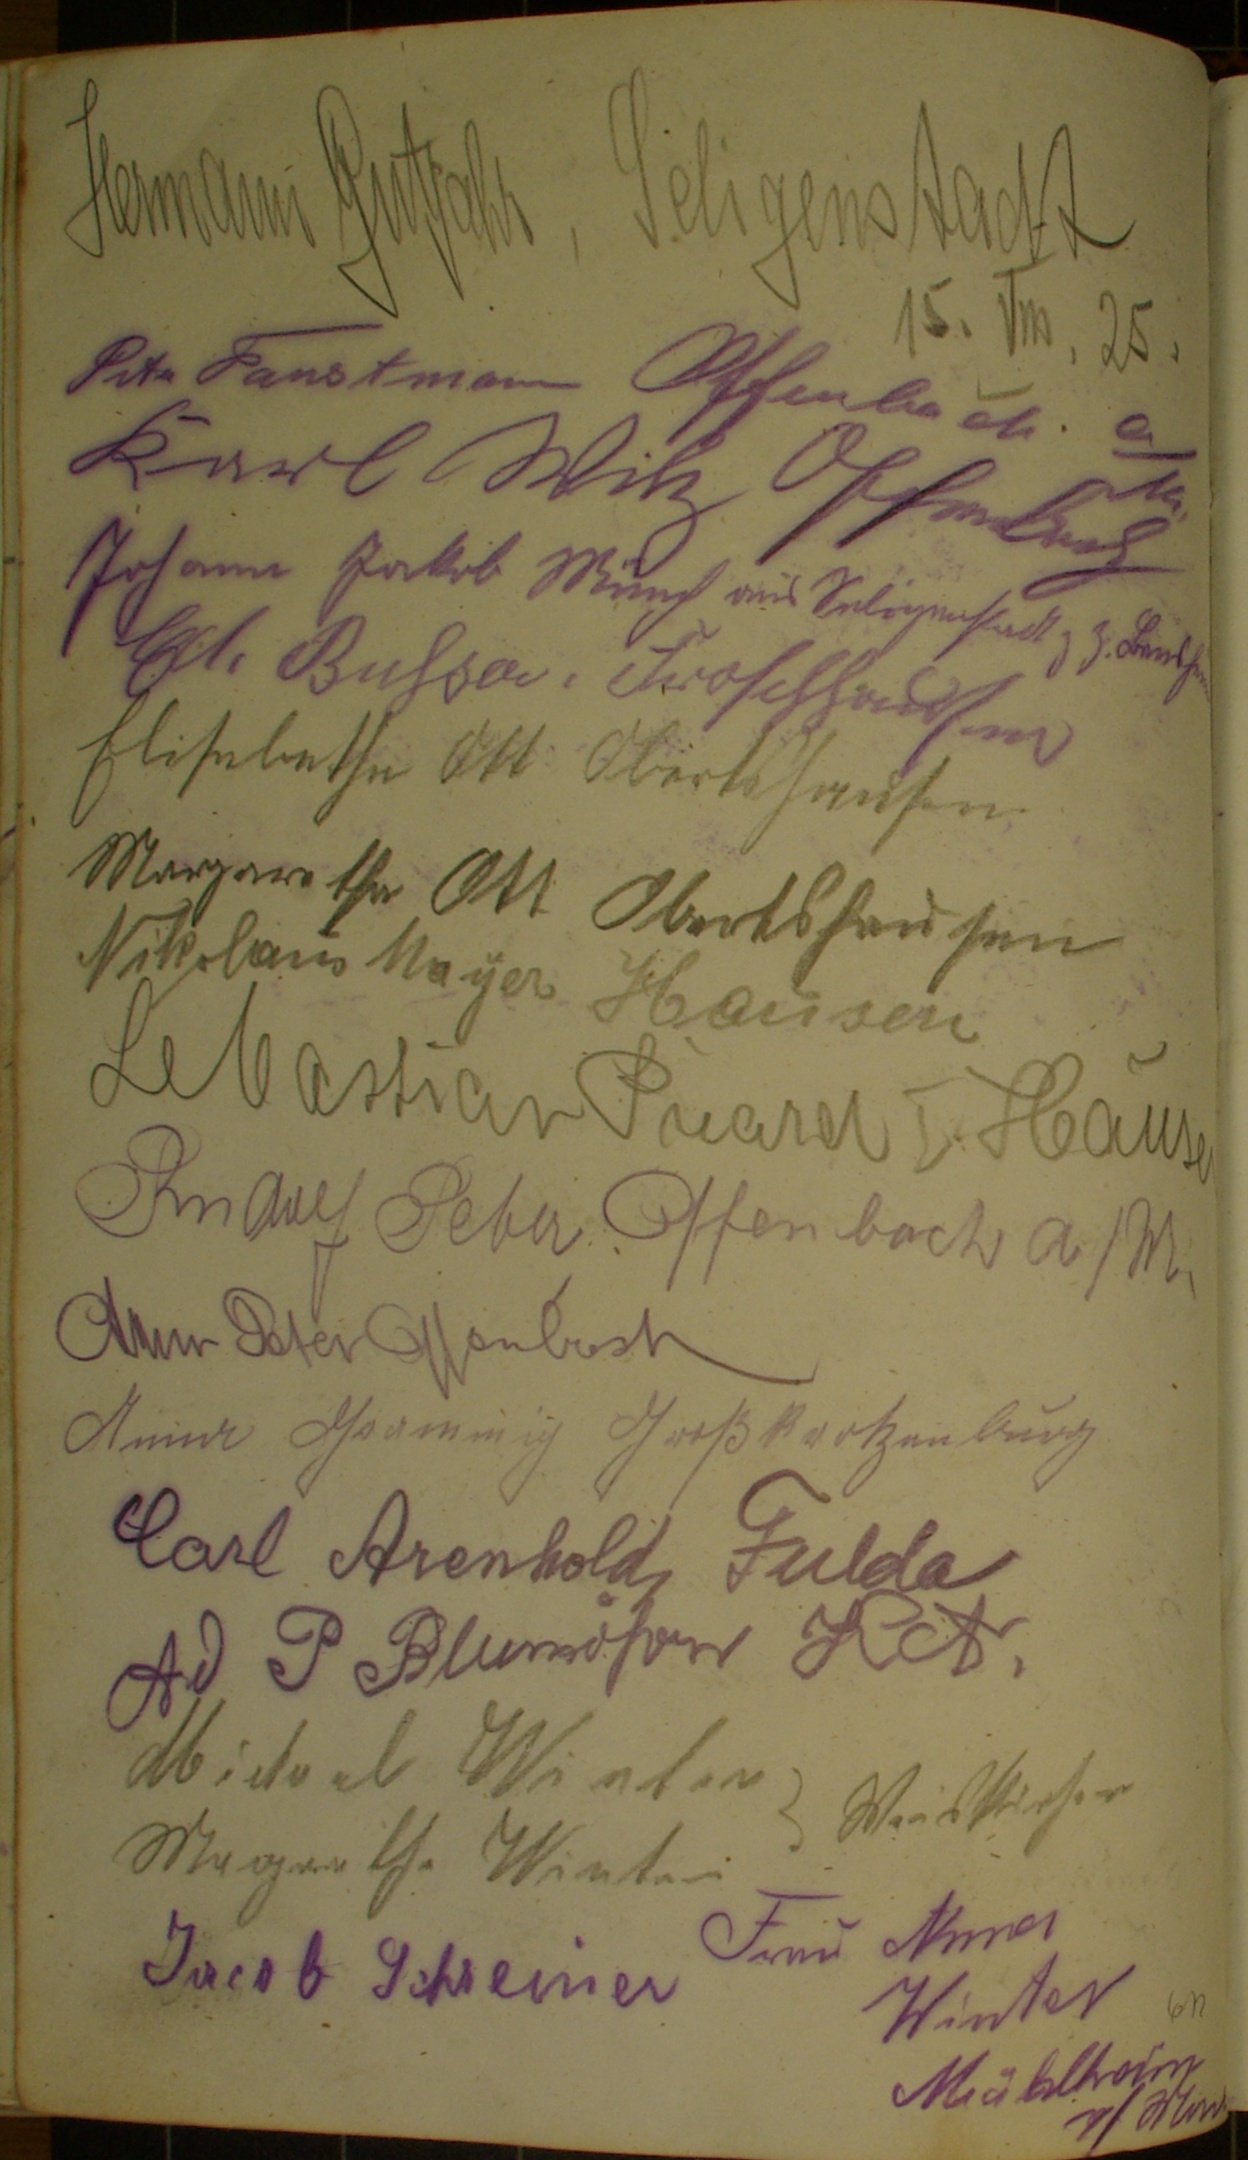 Hermann Gutjahr, Seligenstadt
15. VIII. 25.
Peter Faustmann Offenbach. a/M.
Karl Wilz Offenbach
Johann Jakob Münch aus Seligenstadt z. Z.
Busser. Froschhausen
Elisabetha Ott Obertshausen
Margaretha Ott Obertshausen
Nikolaus Mayer Hausen
Sebastian Hausen
Rudolf Peter Offenbach a/M.
Anna Peter Offenbach
Anna Großkrotzenburg
Carl Arenhold, Fulda
Ad P
Michael Winter } Weiskirchen
Margaretha Winter
Jacob Schreiner
Frau Anna
Winter
Mühlheim
a/Main